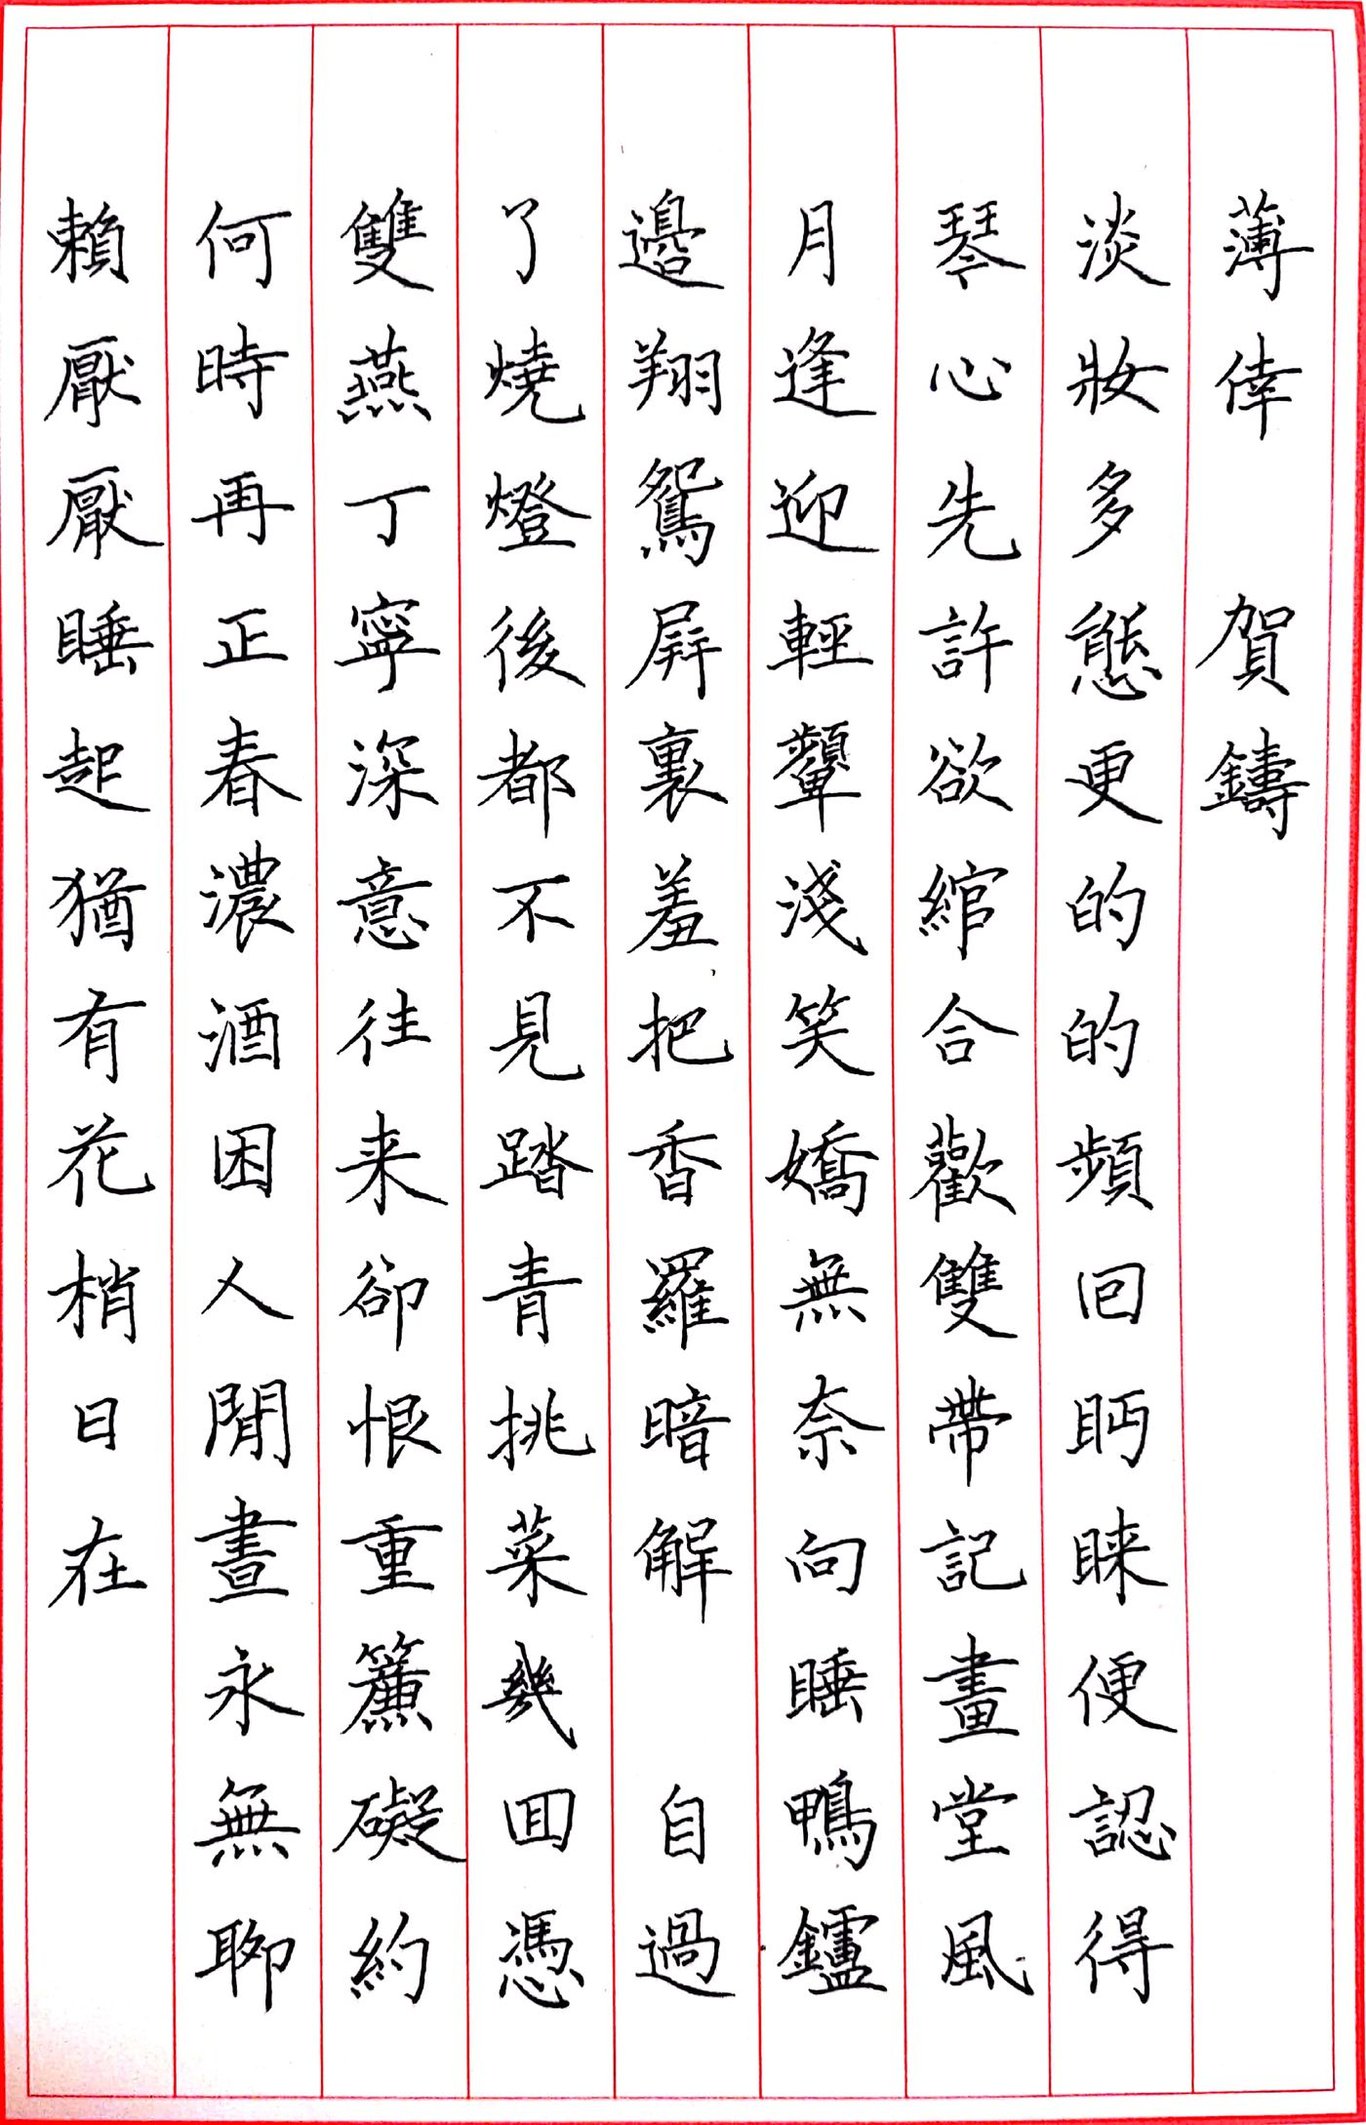 薄倖 賀鑄
淡妝多態更的的頻回眄睞便認得
琴心先許欲綰合歡雙帶記畫堂風
月逢迎輕顰淺笑嬌無奈向睡鴨鑪
邊翔鴛屏裏羞把香羅暗解 自過
了燒燈後都不見踏青挑菜幾回憑
雙燕丁寧深意往来卻恨重簾礙約
何時再正春濃酒困人閒晝永無聊
賴厭厭睡起猶有花梢日在